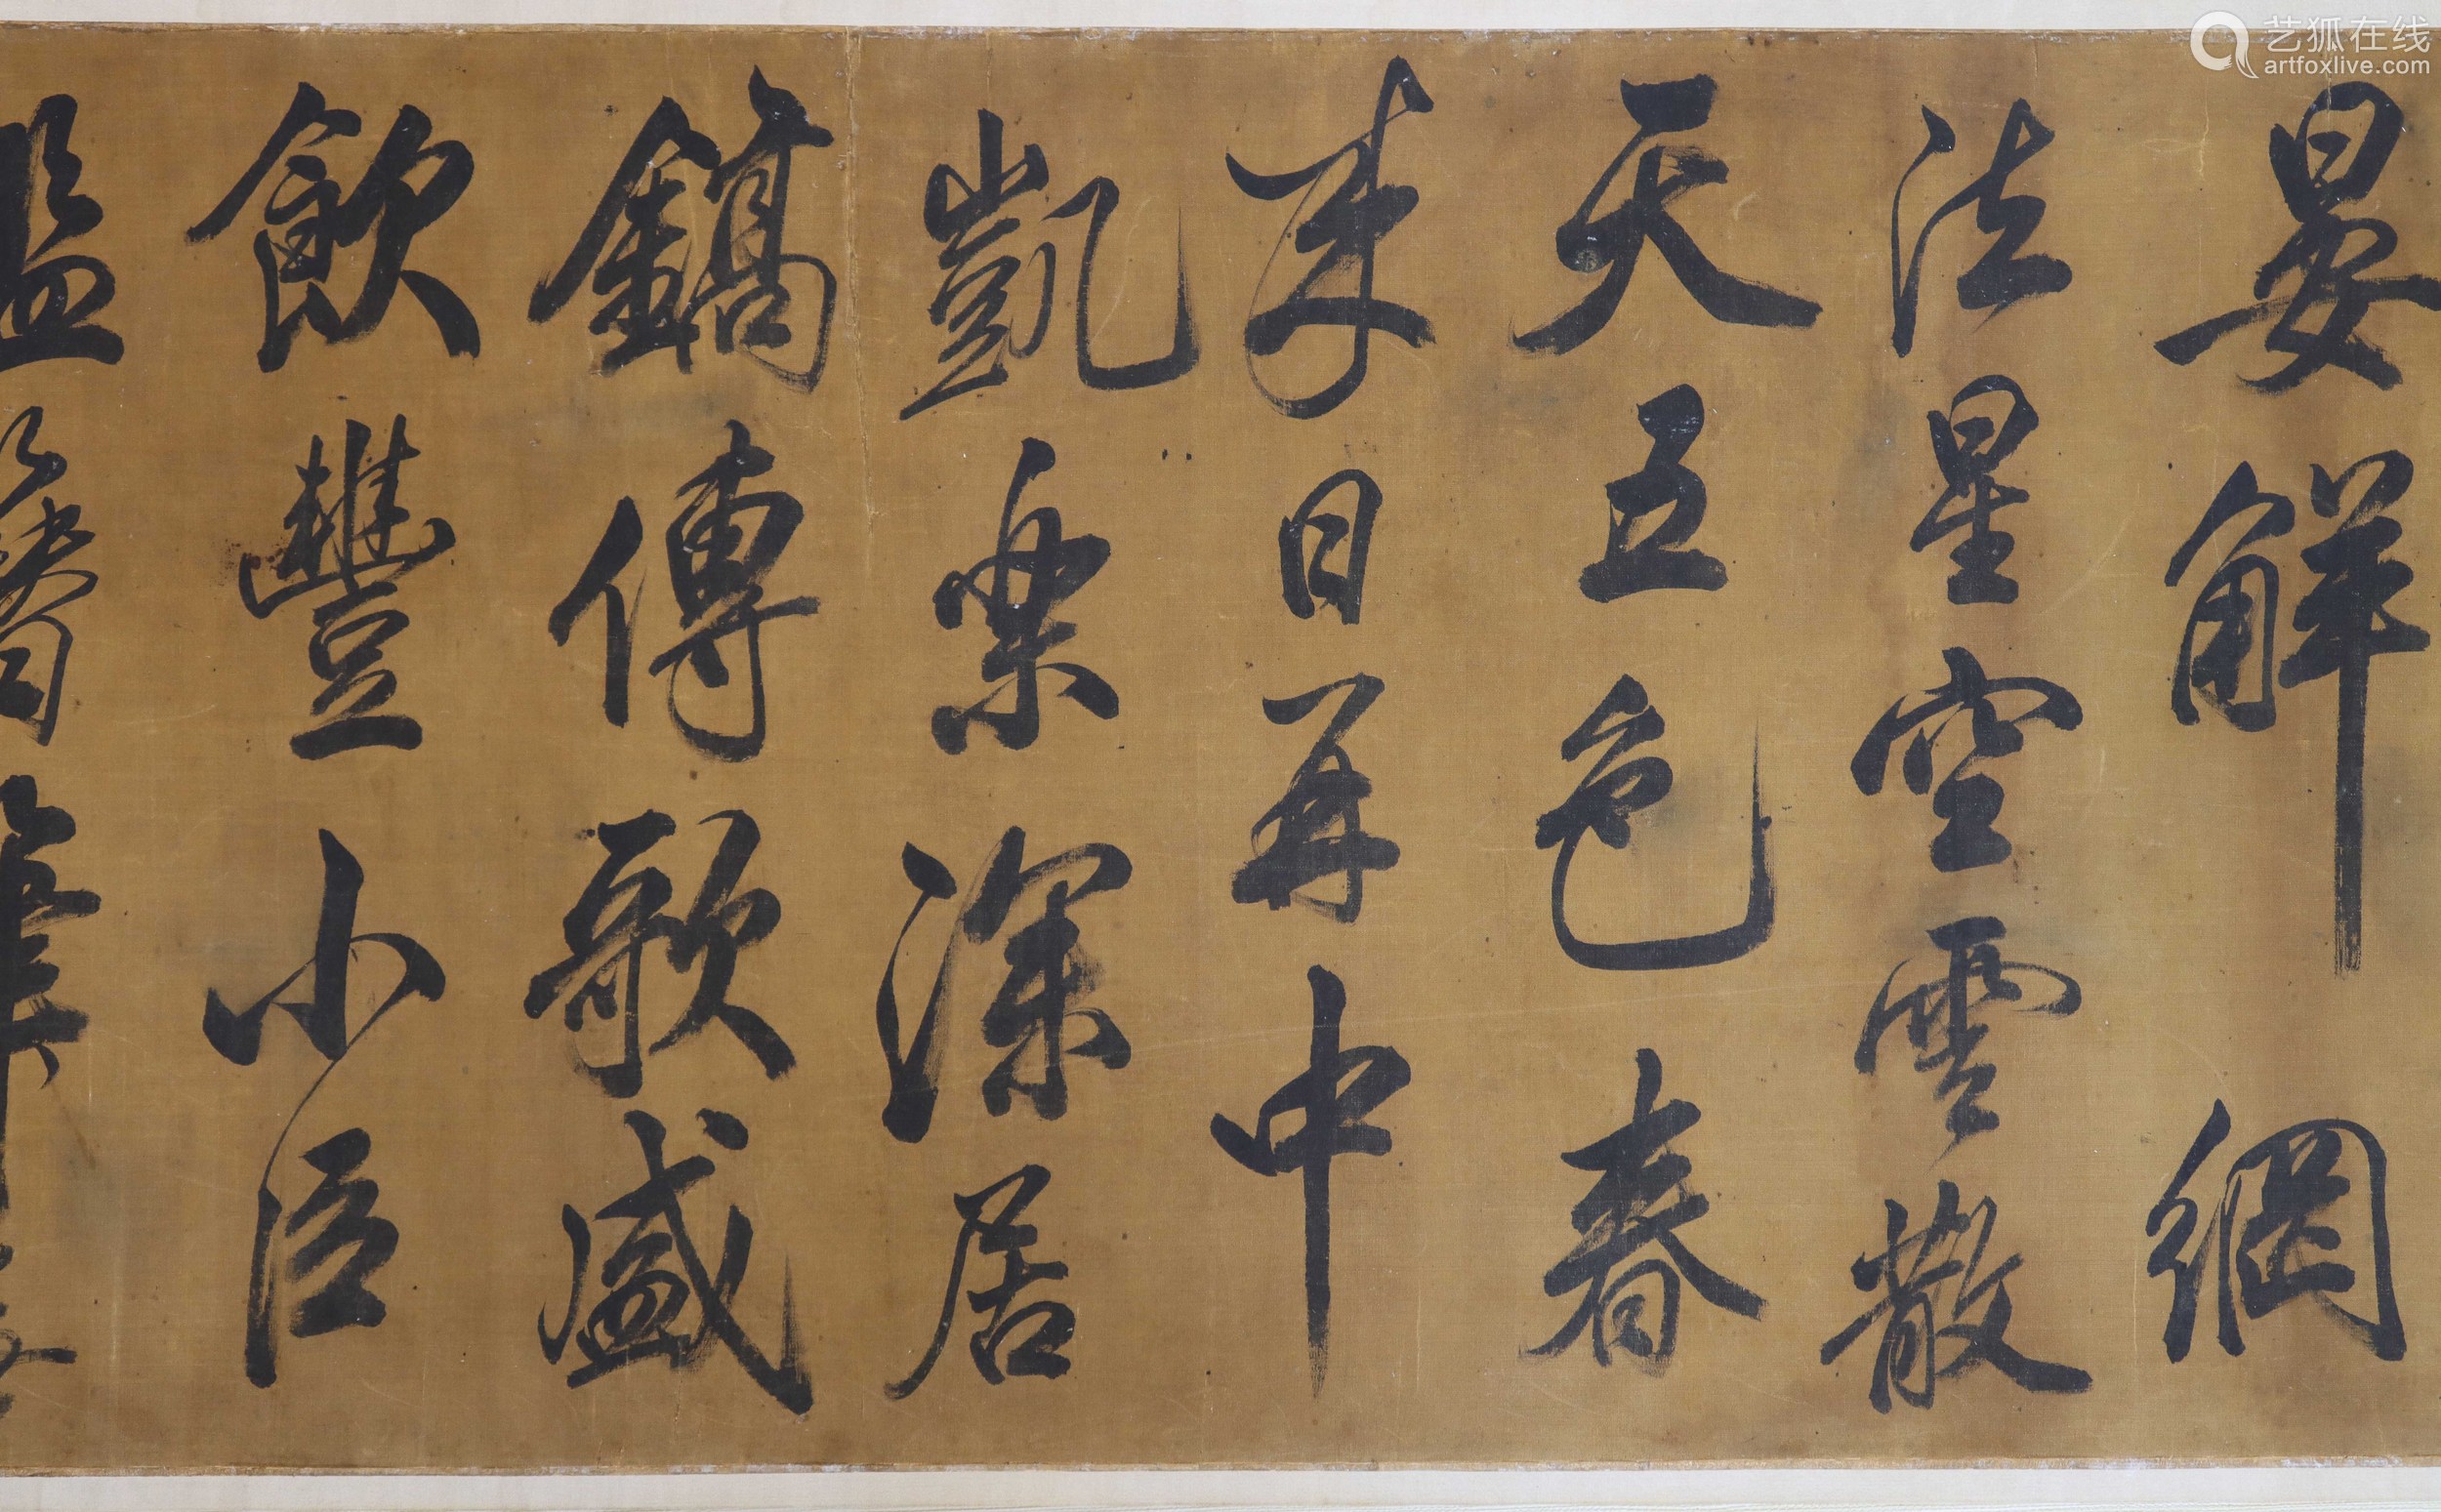 艺狐在线
artfoxlive.com
晏解網
法星空雲散
天五色春
來日再中
凱樂深居
鎬傳歌盛
飲豐小臣
簪筆